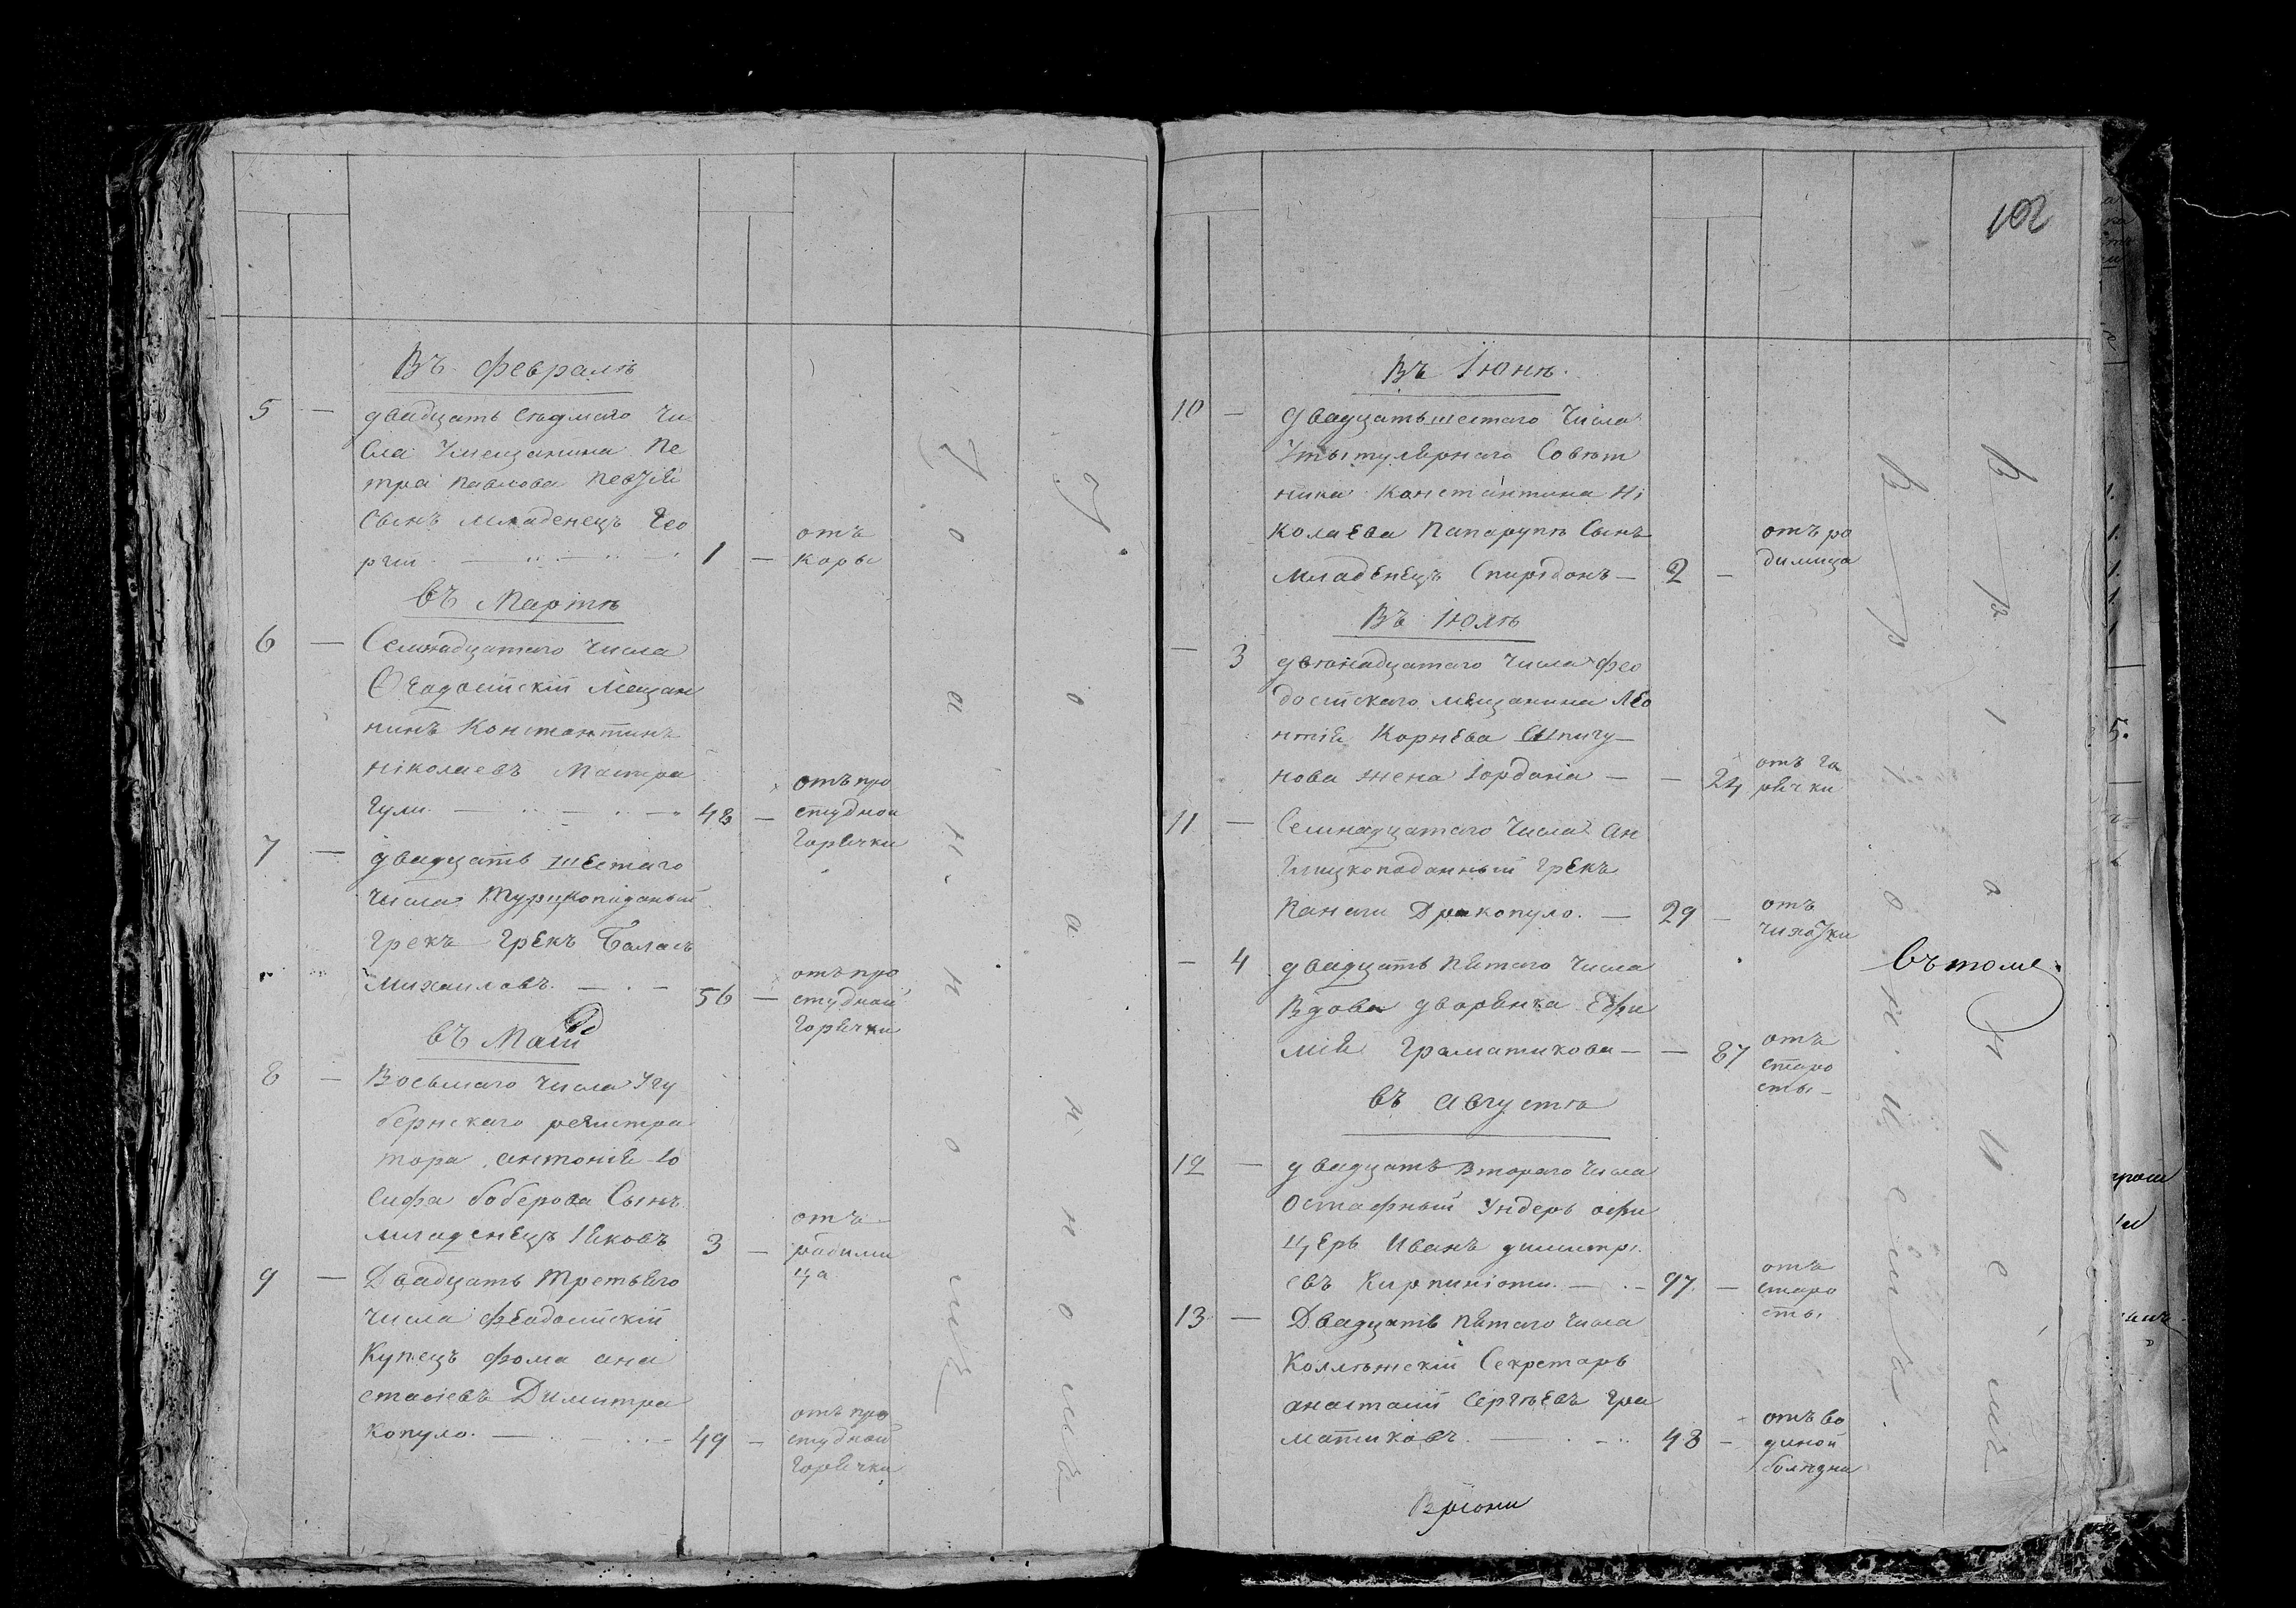 Въ Февралѣ
5 — двадцать седмаго чи
сла Умещанина Пе
тра Павлова
Сынъ младенецъ Гео
ргии — 1 — отъ
коры
въ Мартѣ
6 — Семнадцатаго числа
Ѳеодосійскій Мещан
нинъ Константинъ
Ніколаевъ Мастра
гули — 48 — отъ про
студной
горячки
7 — двадцать шестаго
числа Турецкоподаный
грекъ грекъ Баласъ
Михаиловъ. — 56 — отъ про
студной
горячки
въ Маии
8 — Восьмаго числа Угу
бернскаго регистра
тора антонія Іо
сифа боберова Сынъ
младенецъ Іяковъ 3 — отъ
родими
ца
9 — Двадцать третьяго
числа Феодосійскій
Купецъ фома ана
стасіевъ Димитра
копуло. — 49 — отъ про
студной
горячки
102
Въ Іюнѣ.
10 — двадцать шестаго числа
Утытулярнаго Совѣт
ника Константина Ні
колаева Папарупы Сынъ
младенецъ Спиридонъ — 2 — отъ ро
димица
Въ Іюлѣ
— 3 двенадцатаго числа Фео
досійскаго мещанина Лео
нтія Корнева Шпигу
нова жена Іорданіа — — 24 отъ го
рячки
11 — Семнадцатаго числа Ан
глицкоподанный грекъ
Панаги Дракопуло. — 29 — отъ
чихотки
— 4 двадцать пятаго числа
Вдова дворянка Ефи
мія Граматикова — — 87 отъ
старо
сты
въ Августѣ
12 — двадцать втораго числа
Остафный Ундеръ офи
церъ Иванъ димитрі
евъ — 97. — отъ
старо
сты
13 — Двадцать пятаго числа
Коллѣжскій Секретарь
анастасій Сергѣевъ Гра
матиковъ. — 48 — отъ во
дяной
болѣзни
въ томъ